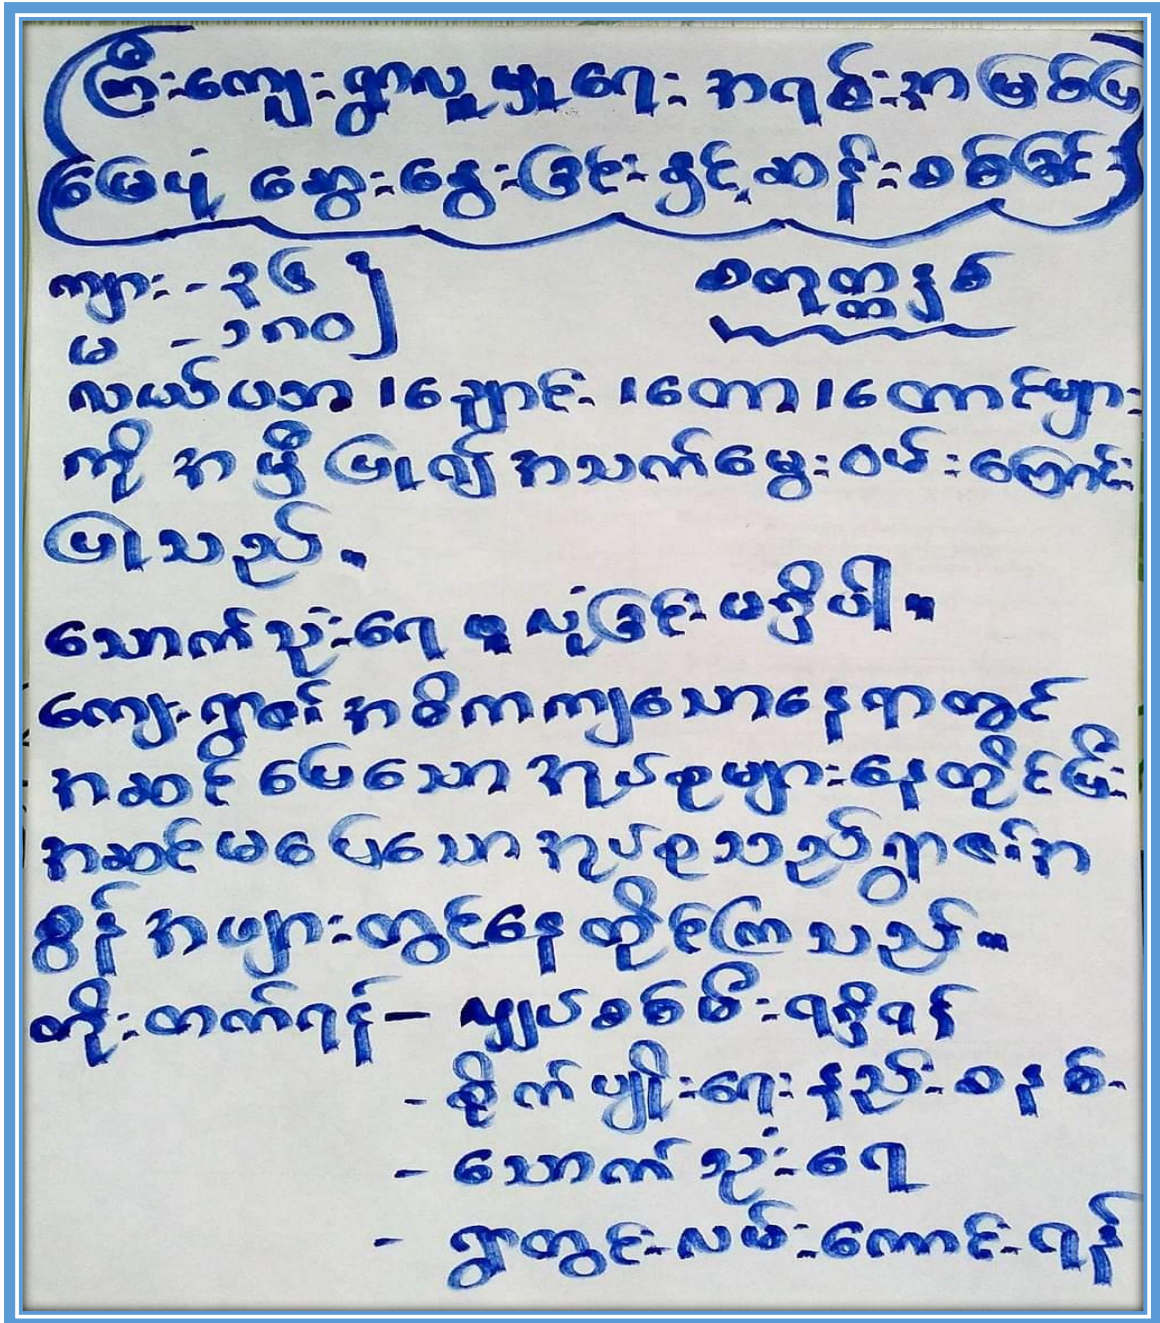 ကြီးကျေးရွာလူမှုရေး အရင်းအမြစ်ပြ
မြေပုံ ဆွေးနွေးခြင်းနှင့် ဆန်းစစ်ခြင်း
ကျား - ၃၆
မ - ၁၈၀
စတုတ္ထနှစ်
လယ်ပဘာ ၊ချောင်း ၊တော ၊တောင်များ
ကို အမှီပြု၍ အသက်မွေးဝမ်းကြောင်း
ပြုသည်။
သောက်သုံးရေ မူလုံခြင်း မရှိပါ။
ကျေးရွာ၏ အဓိကကျသောနေရာတွင်
အဆင်ပြေသော အုပ်စုများနေထိုင်ပြီး
အဆင်မပြေသော အုပ်စုသည် ရွာ၏အ
စွန်အဖျားတွင်နေထိုင်ကြသည်။
တိုးတက်ရန် – လျှပ်စစ်မီးရရှိရန်
- စိုက်ပျိုးရေးနည်းစနစ်
- သောက်သုံးရေ
- ရွာတွင်းလမ်းကောင်းရန်